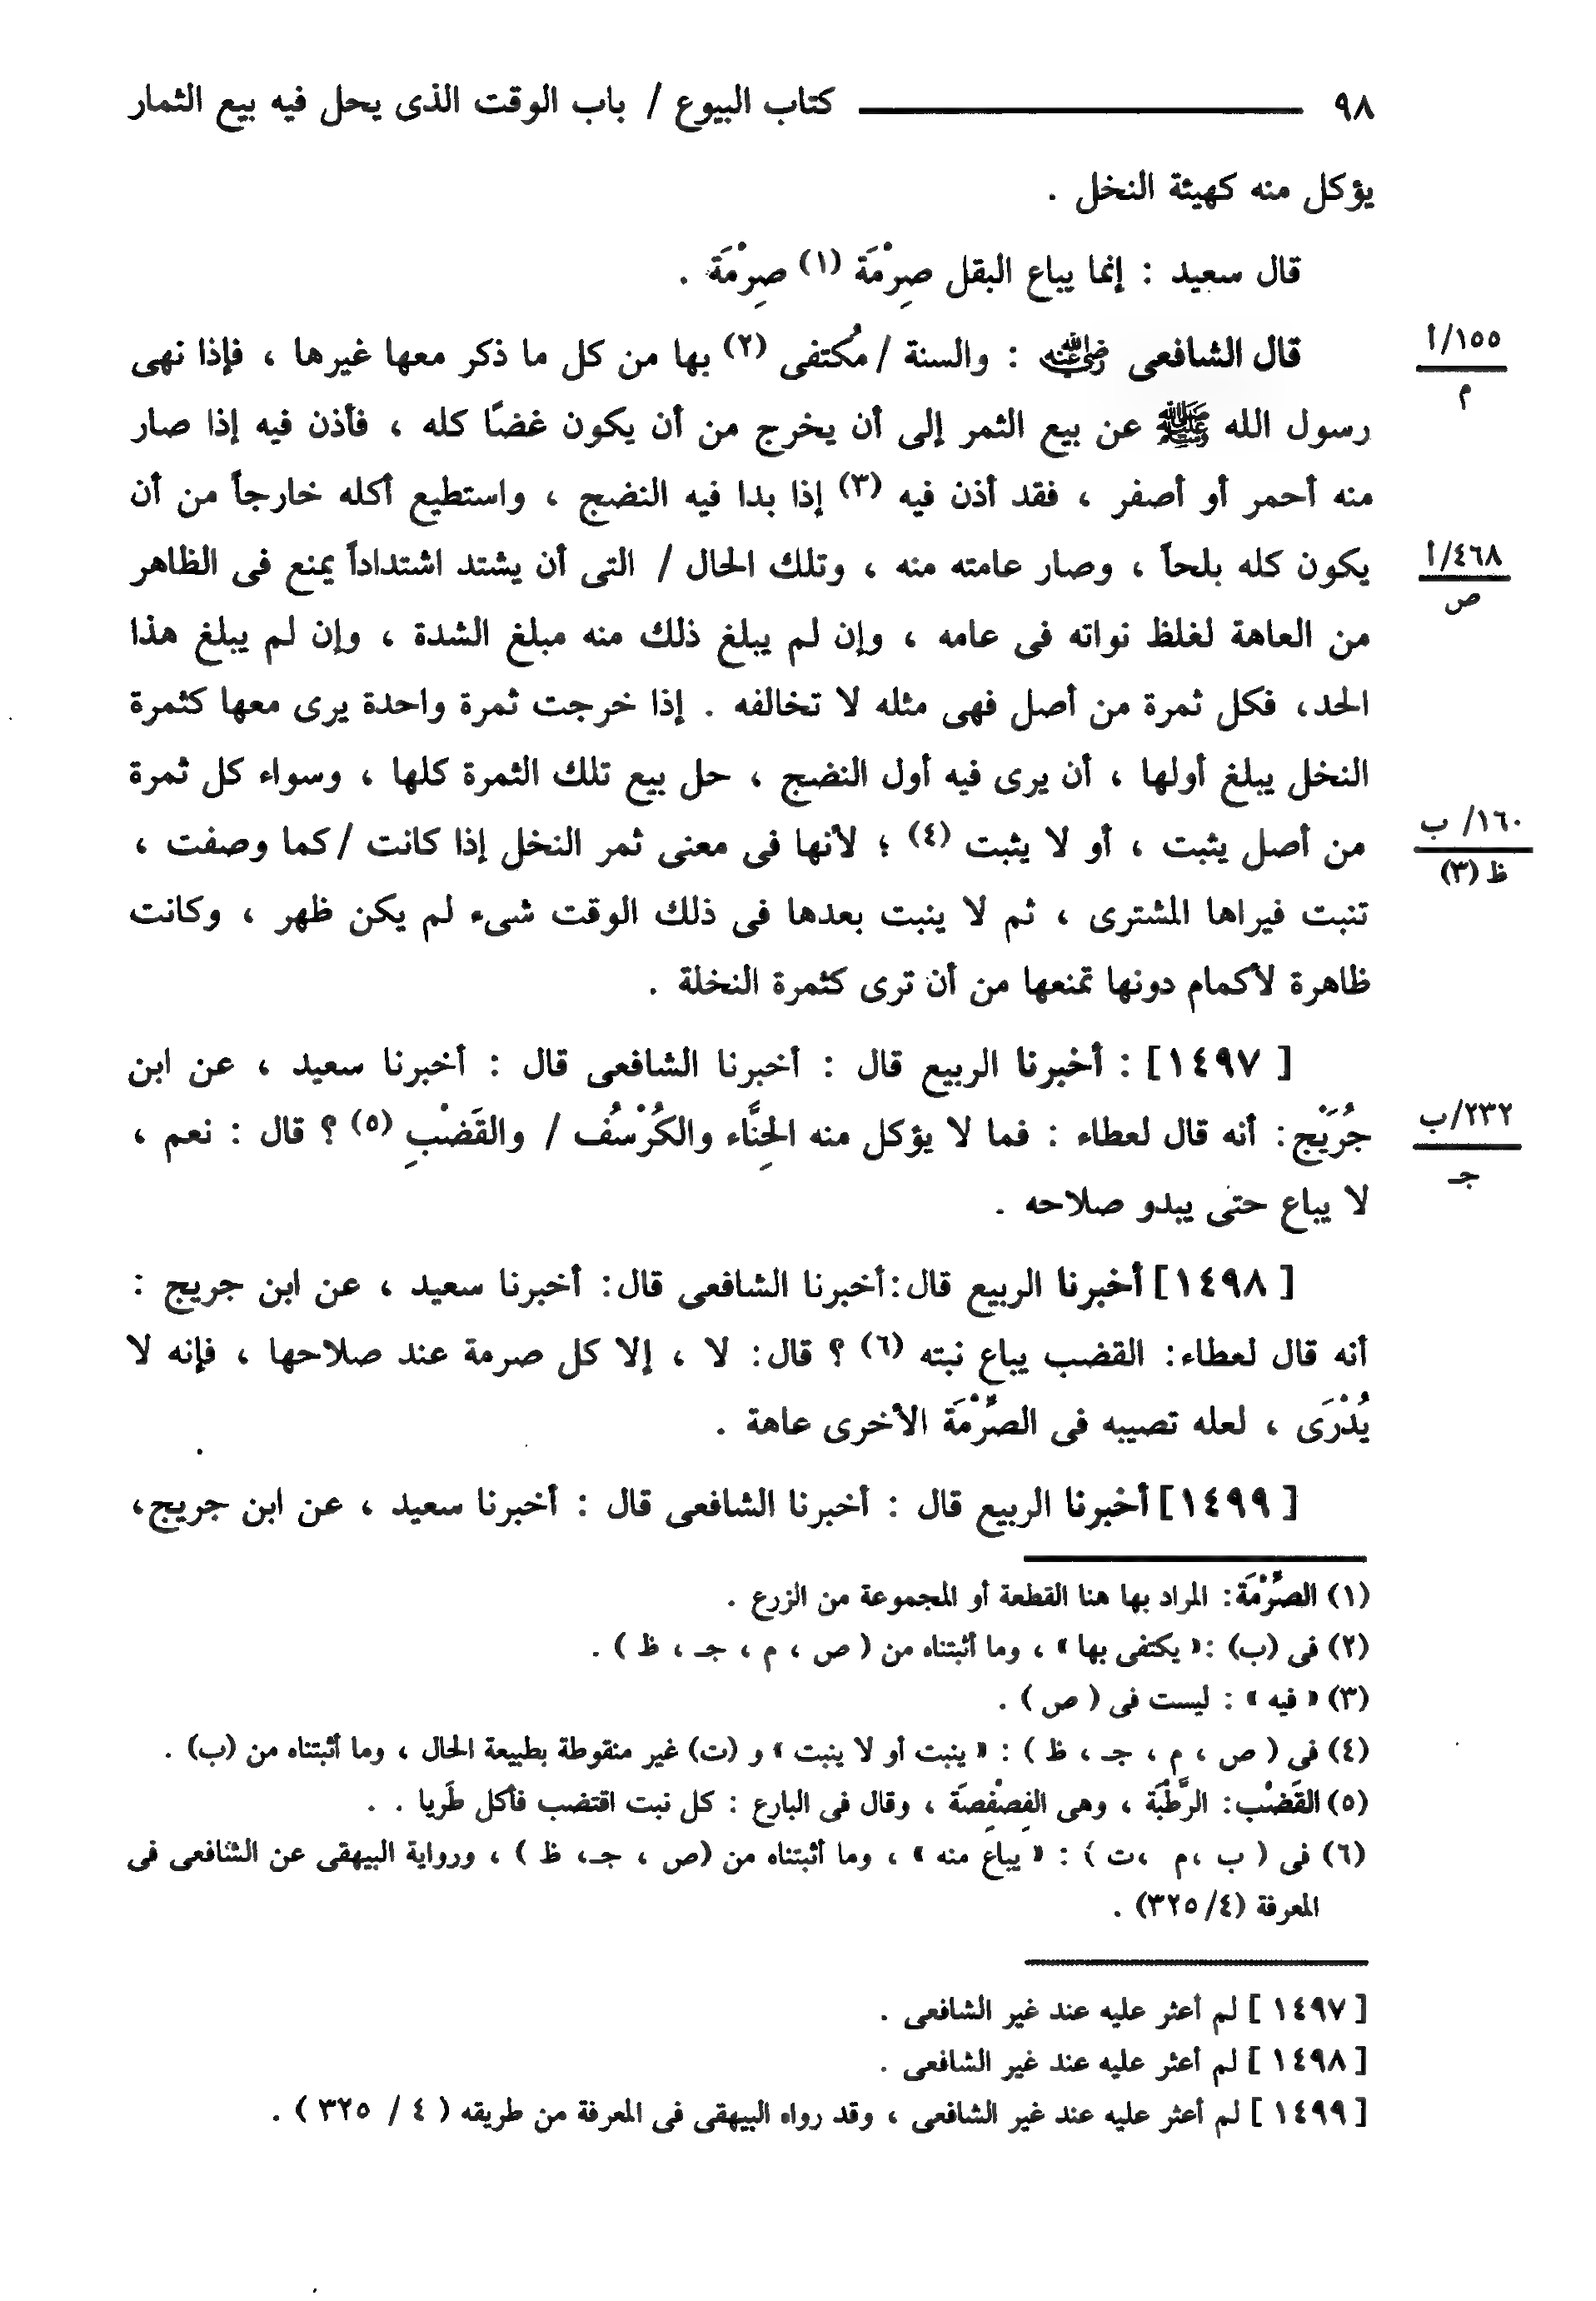 ٩٨ كتاب البيوع / باب الوقت الذى يحل فيه بيع الثمار
يؤكل منه كهيئة النخل .
قال سعيد : إنما يباع البقل صِرْمَة (١) صِرْمَة .
١٥٥/أ
م
قال الشافعى رضي الله عنه : والسنة / مُكتفى (٢) بها من كل ما ذكر معها غيرها ، فإذا نهى
رسول الله ﷺ عن بيع الثمر إلى أن يخرج من أن يكون غضًا كله ، فأذن فيه إذا صار
منه أحمر أو أصفر ، فقد أذن فيه (٣) إذا بدا فيه النضج ، واستطيع أكله خارجاً من أن
٤٦٨/أ
ص
يكون كله بلحاً ، وصار عامته منه ، وتلك الحال / التى أن يشتد اشتداداً يمنع فى الظاهر
من العاهة لغلظ نواته فى عامه ، وإن لم يبلغ ذلك منه مبلغ الشدة ، وإن لم يبلغ هذا
الحد، فكل ثمرة من أصل فهى مثله لا تخالفه . إذا خرجت ثمرة واحدة يرى معها كثمرة
النخل يبلغ أولها ، أن يرى فيه أول النضج ، حل بيع تلك الثمرة كلها ، وسواء كل ثمرة
١٦٠/ ب
ظ (٣)
من أصل يثبت ، أو لا يثبت (٤) ؛ لأنها فى معنى ثمر النخل إذا كانت / كما وصفت ،
تنبت فيراها المشترى ، ثم لا ينبت بعدها فى ذلك الوقت شىء لم يكن ظهر ، وكانت
ظاهرة لأكمام دونها تمنعها من أن ترى كثمرة النخلة .
[ ١٤٩٧] : أخبرنا الربيع قال : أخبرنا الشافعى قال : أخبرنا سعيد ، عن ابن
٢٣٢/ب
جـ
جُرَيْج: أنه قال لعطاء : فما لا يؤكل منه الحِنَّاء والكُرْسُف / والقَضْبِ (٥) ؟ قال : نعم ،
لا يباع حتى يبدو صلاحه .
[ ١٤٩٨] أخبرنا الربيع قال:أخبرنا الشافعى قال: أخبرنا سعيد ، عن ابن جريج :
أنه قال لعطاء: القضب يباع نبته (٦) ؟ قال: لا ، إلا كل صرمة عند صلاحها ، فإنه لا
يُدْرَى ، لعله تصيبه فى الصِّرْمَة الأخرى عاهة .
[ ١٤٩٩] أخبرنا الربيع قال : أخبرنا الشافعى قال : أخبرنا سعيد ، عن ابن جريج،
(١) الصِّرْمَة: المراد بها هنا القطعة أو المجموعة من الزرع .
(٢) فى (ب) :« يكتفى بها » ، وما أثبتناه من ( ص ، م ، جـ ، ظ ) .
(٣) « فيه » : ليست فى ( ص ) .
(٤) فى ( ص ، م ، جـ ، ظ ) : « ينبت أو لا ينبت » و (ت) غير منقوطة بطبيعة الحال ، وما أثبتناه من (ب) .
(٥) القَضْب: الرَّطْبَة ، وهى الفِصْفِصَة ، وقال فى البارع : كل نبت اقتضب فأكل طَريا . .
(٦) فى ( ب ،م ،ت ) : « يباع منه » ، وما أثبتناه من (ص ، جـ، ظ ) ، ورواية البيهقى عن الشافعى فى
المعرفة (٤/ ٣٢٥) .
[ ١٤٩٧ ] لم أعثر عليه عند غير الشافعى .
[ ١٤٩٨ ] لم أعثر عليه عند غير الشافعى .
[ ١٤٩٩ ] لم أعثر عليه عند غير الشافعى ، وقد رواه البيهقى فى المعرفة من طريقه ( ٤ / ٣٢٥ ) .